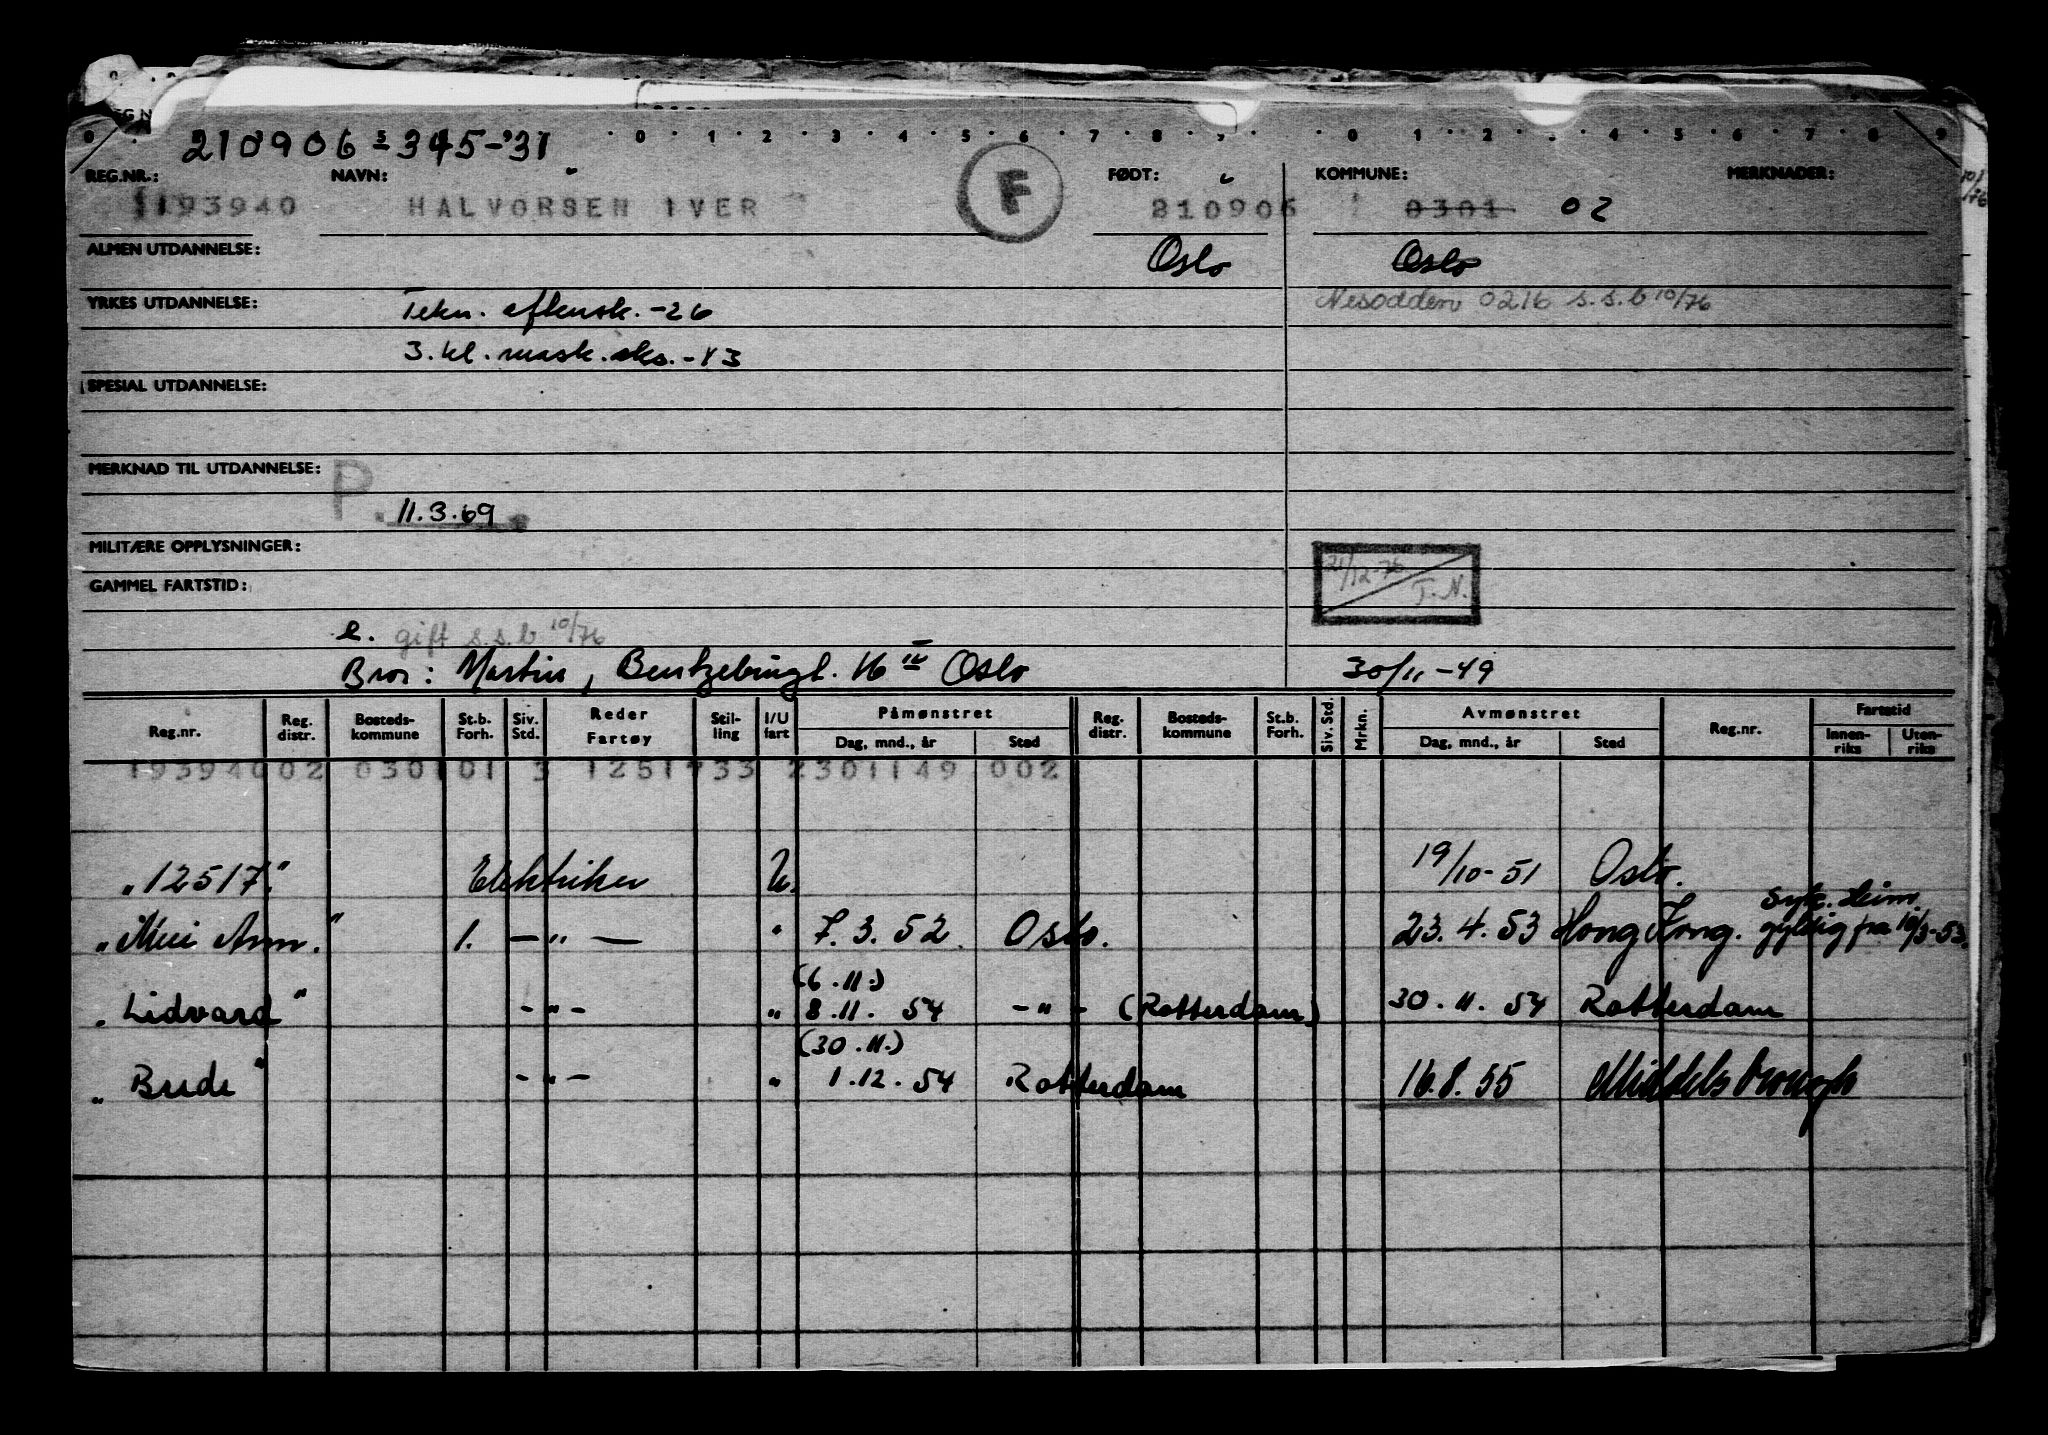 210906 - 345-31
0 1 2 3 4 5 6 7 8 9 0 1 2 3 4 5 6 7 8 9
REG.NR.: NAVN: FØDT: KOMMUNE: MERKNADER:
193940 HALVORSEN IVER F 210906 0301 02
ALMEN UTDANNELSE: Oslo Oslo
YRKES UTDANNELSE: Tekn. aftensk. -26 Nesodden 0216 s.s.b 10/76
3. kl. mask. eks. -43
SPESIAL UTDANNELSE:
MERKNAD TIL UTDANNELSE: P.
11.3.69
MILITÆRE OPPLYSNINGER: 21/12-76 T.N.
GAMMEL FARTSTID:
e. gift s.s.b 10/76
Bror: Martin, Bentzebrugt. 16 IV Oslo 30/11-49
Reg.nr. Reg. distr. Bosteds-kommune St.b. Forh. Siv. Std. Reder Fartøy Stil-ling I/U fart Påmønstret Dag, mnd., år Sted Reg. distr. Bosteds-kommune St.b. Forh. Siv. Std. Mrkn. Avmønstret Dag, mnd., år Sted Reg.nr. Fartstid Innen-riks Uten-riks
193940 02 0301 01 3 12517 33 2 301149 002
"12517" Elektriker U. 19/10-51 Oslo.
"Mui Ann." 1. — " — " 7.3.52. Oslo. 23.4.53 Hong Kong. Syk. Heim. gyldig fra 10/3-53.
(6.11.)
"Lidvard" - " - " 8.11. 54 - " - (Rotterdam) 30.11.54 Rotterdam
(30.11.)
"Bride" - " - " 1.12.54 Rotterdam 16.8.55 Middelsbrough